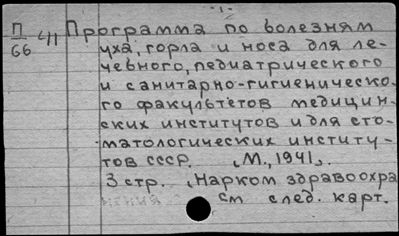 - 1 -
П/66 Программа по болезням
уха, горла и носа для ле-
чебного, педиатрического
и санитарно-гигиеническо-
го факультетов медицин-
ских институтов и для сто-
матологических институ-
тов СССР. (М., 1941).
3 стр. (Нарком здравоохра
см след. карт.